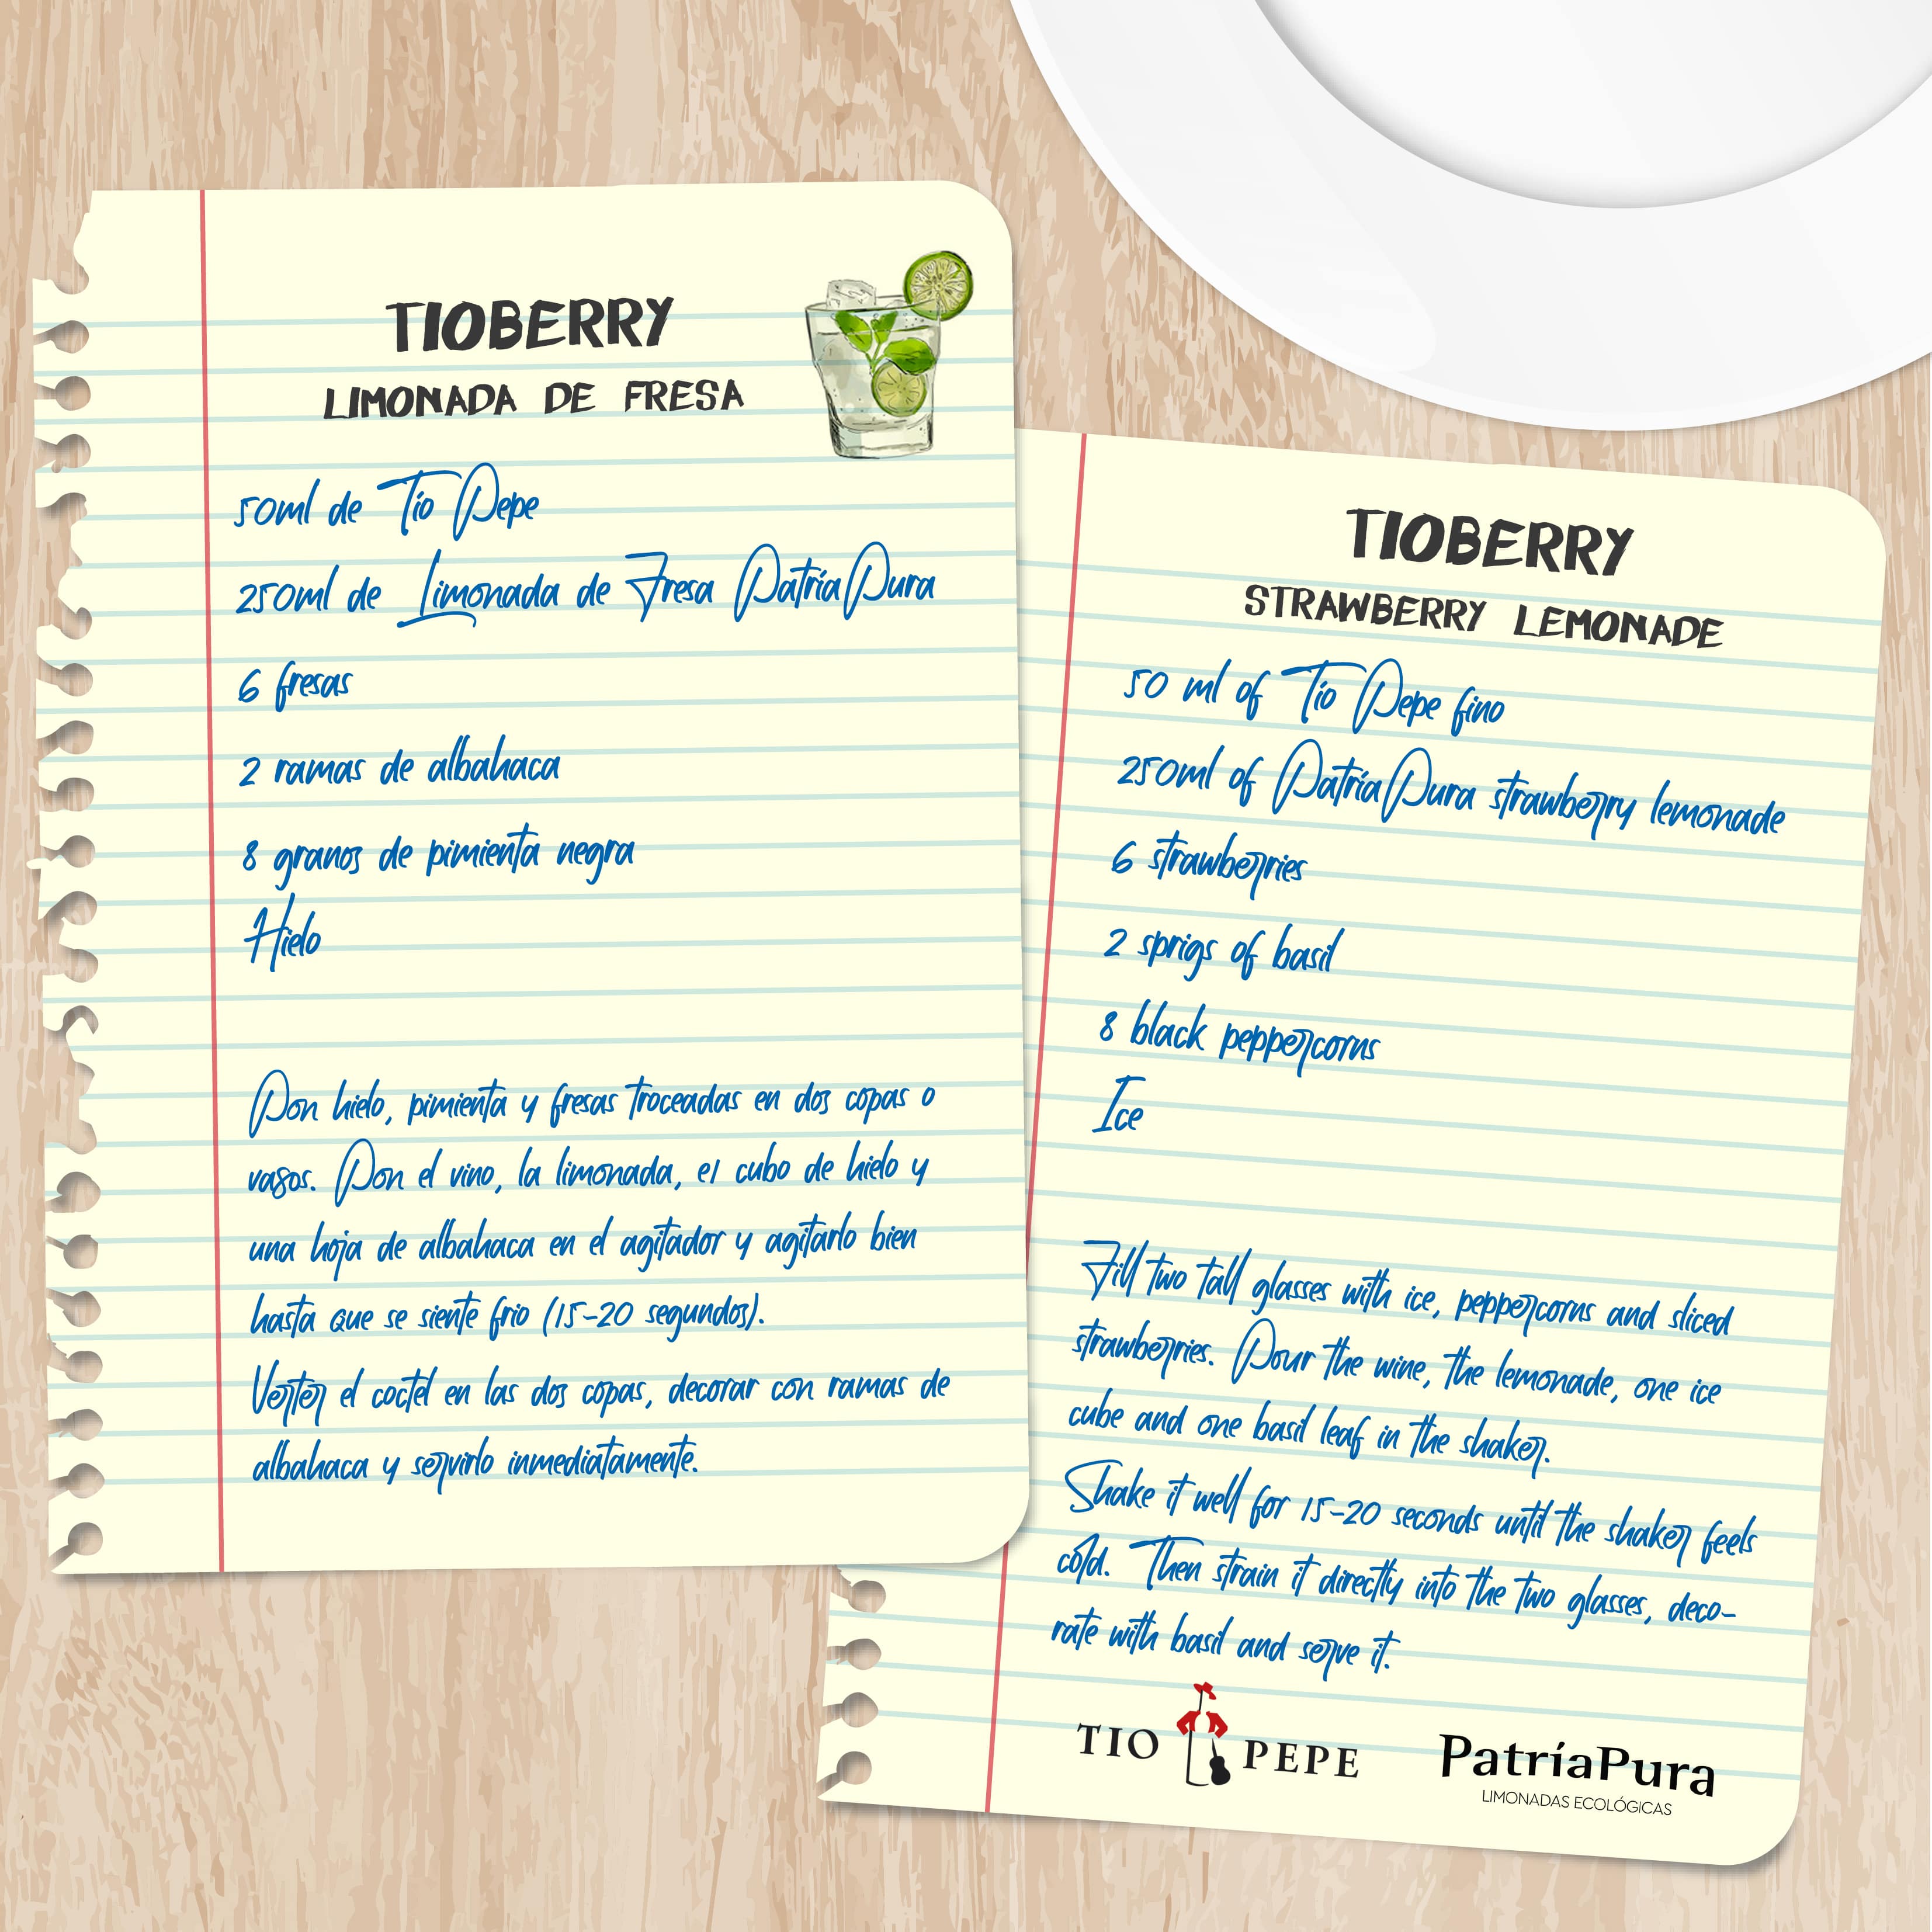 TIOBERRY
LIMONADA DE FRESA
50ml de Tío Pepe
250ml de Limonada de Fresa PatríaPura
6 fresas
2 ramas de albahaca
8 granos de pimienta negra
Hielo
Pon hielo, pimienta y fresas troceadas en dos copas o
vasos. Pon el vino, la limonada, e1 cubo de hielo y
una hoja de albahaca en el agitador y agitarlo bien
hasta que se siente frio (15-20 segundos).
Verter el coctel en las dos copas, decorar con ramas de
albahaca y servirlo inmediatamente.
TIOBERRY
STRAWBERRY LEMONADE
50 ml of Tío Pepe fino
250ml of PatríaPura strawberry lemonade
6 strawberries
2 sprigs of basil
8 black peppercorns
Ice
Fill two tall glasses with ice, peppercorns and sliced
strawberries. Pour the wine, the lemonade, one ice
cube and one basil leaf in the shaker.
Shake it well for 15-20 seconds until the shaker feels
cold. Then strain it directly into the two glasses, deco-
rate with basil and serve it.
TIO PEPE
PatríaPura
LIMONADAS ECOLÓGICAS